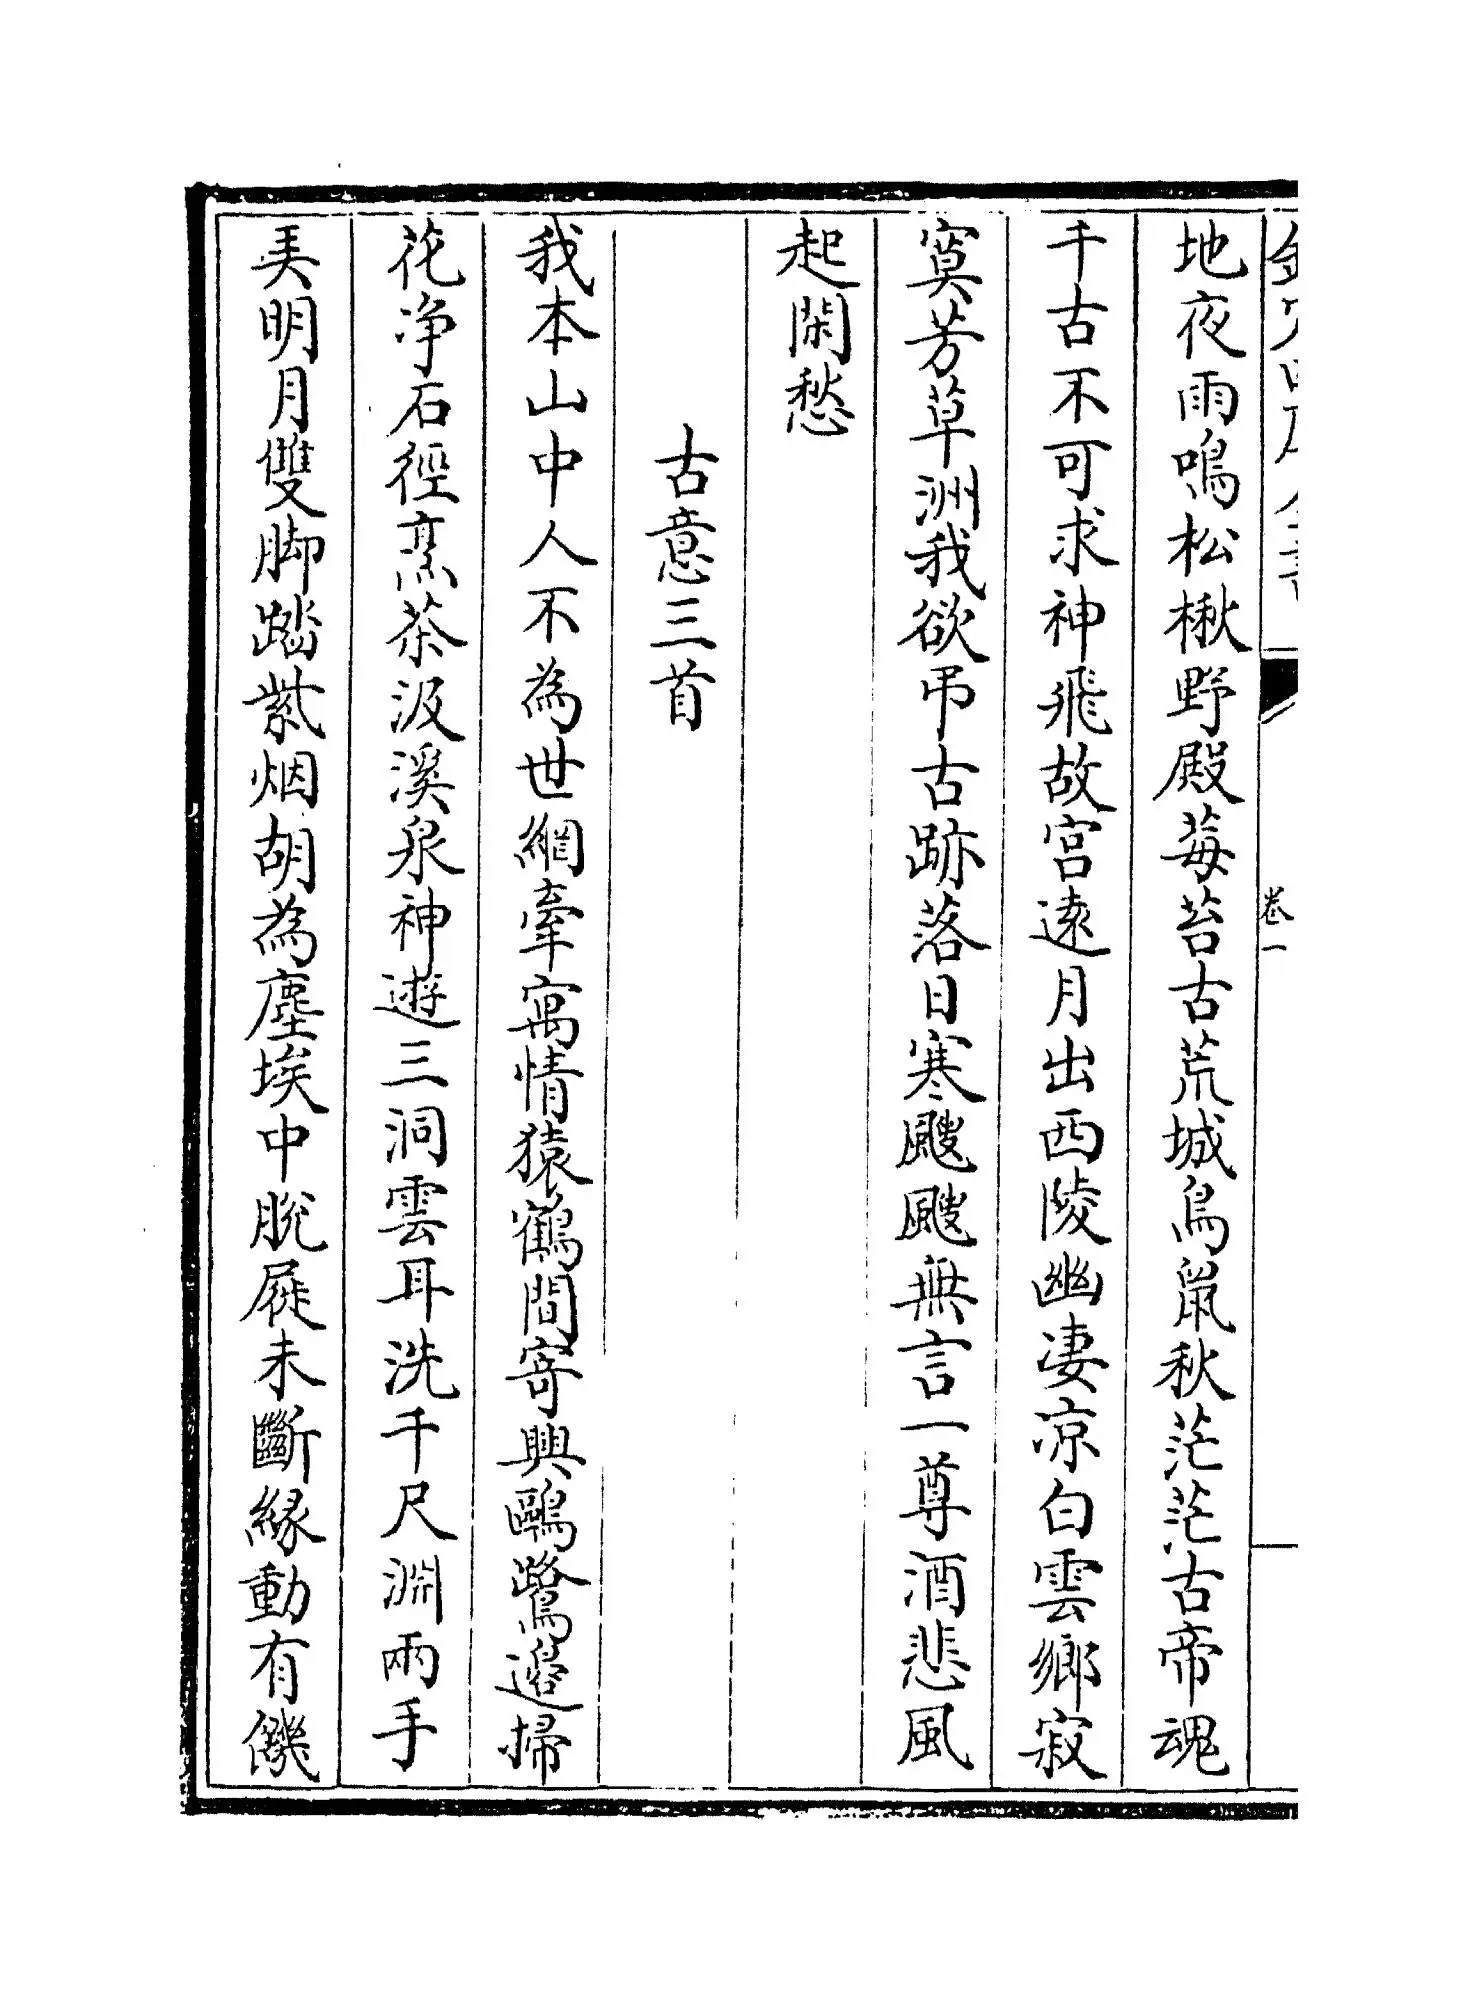 欽定四庫全書
卷一
地夜雨鳴松楸野殿莓苔古荒城鳥鼠秋茫茫古帝魂
千古不可求神飛故宮遠月出西陵幽淒凉白雲鄉寂
寞芳草洲我欲弔古跡落日寒颼颼無言一尊酒悲風
起閑愁
古意三首
我本山中人不為世網牽寓情猿鶴間寄興鷗鷺邉掃
花净石徑烹茶汲溪泉神遊三洞雲耳洗千尺淵兩手
弄明月雙脚踏紫烟胡為塵埃中脫屣未斷緣動有饑